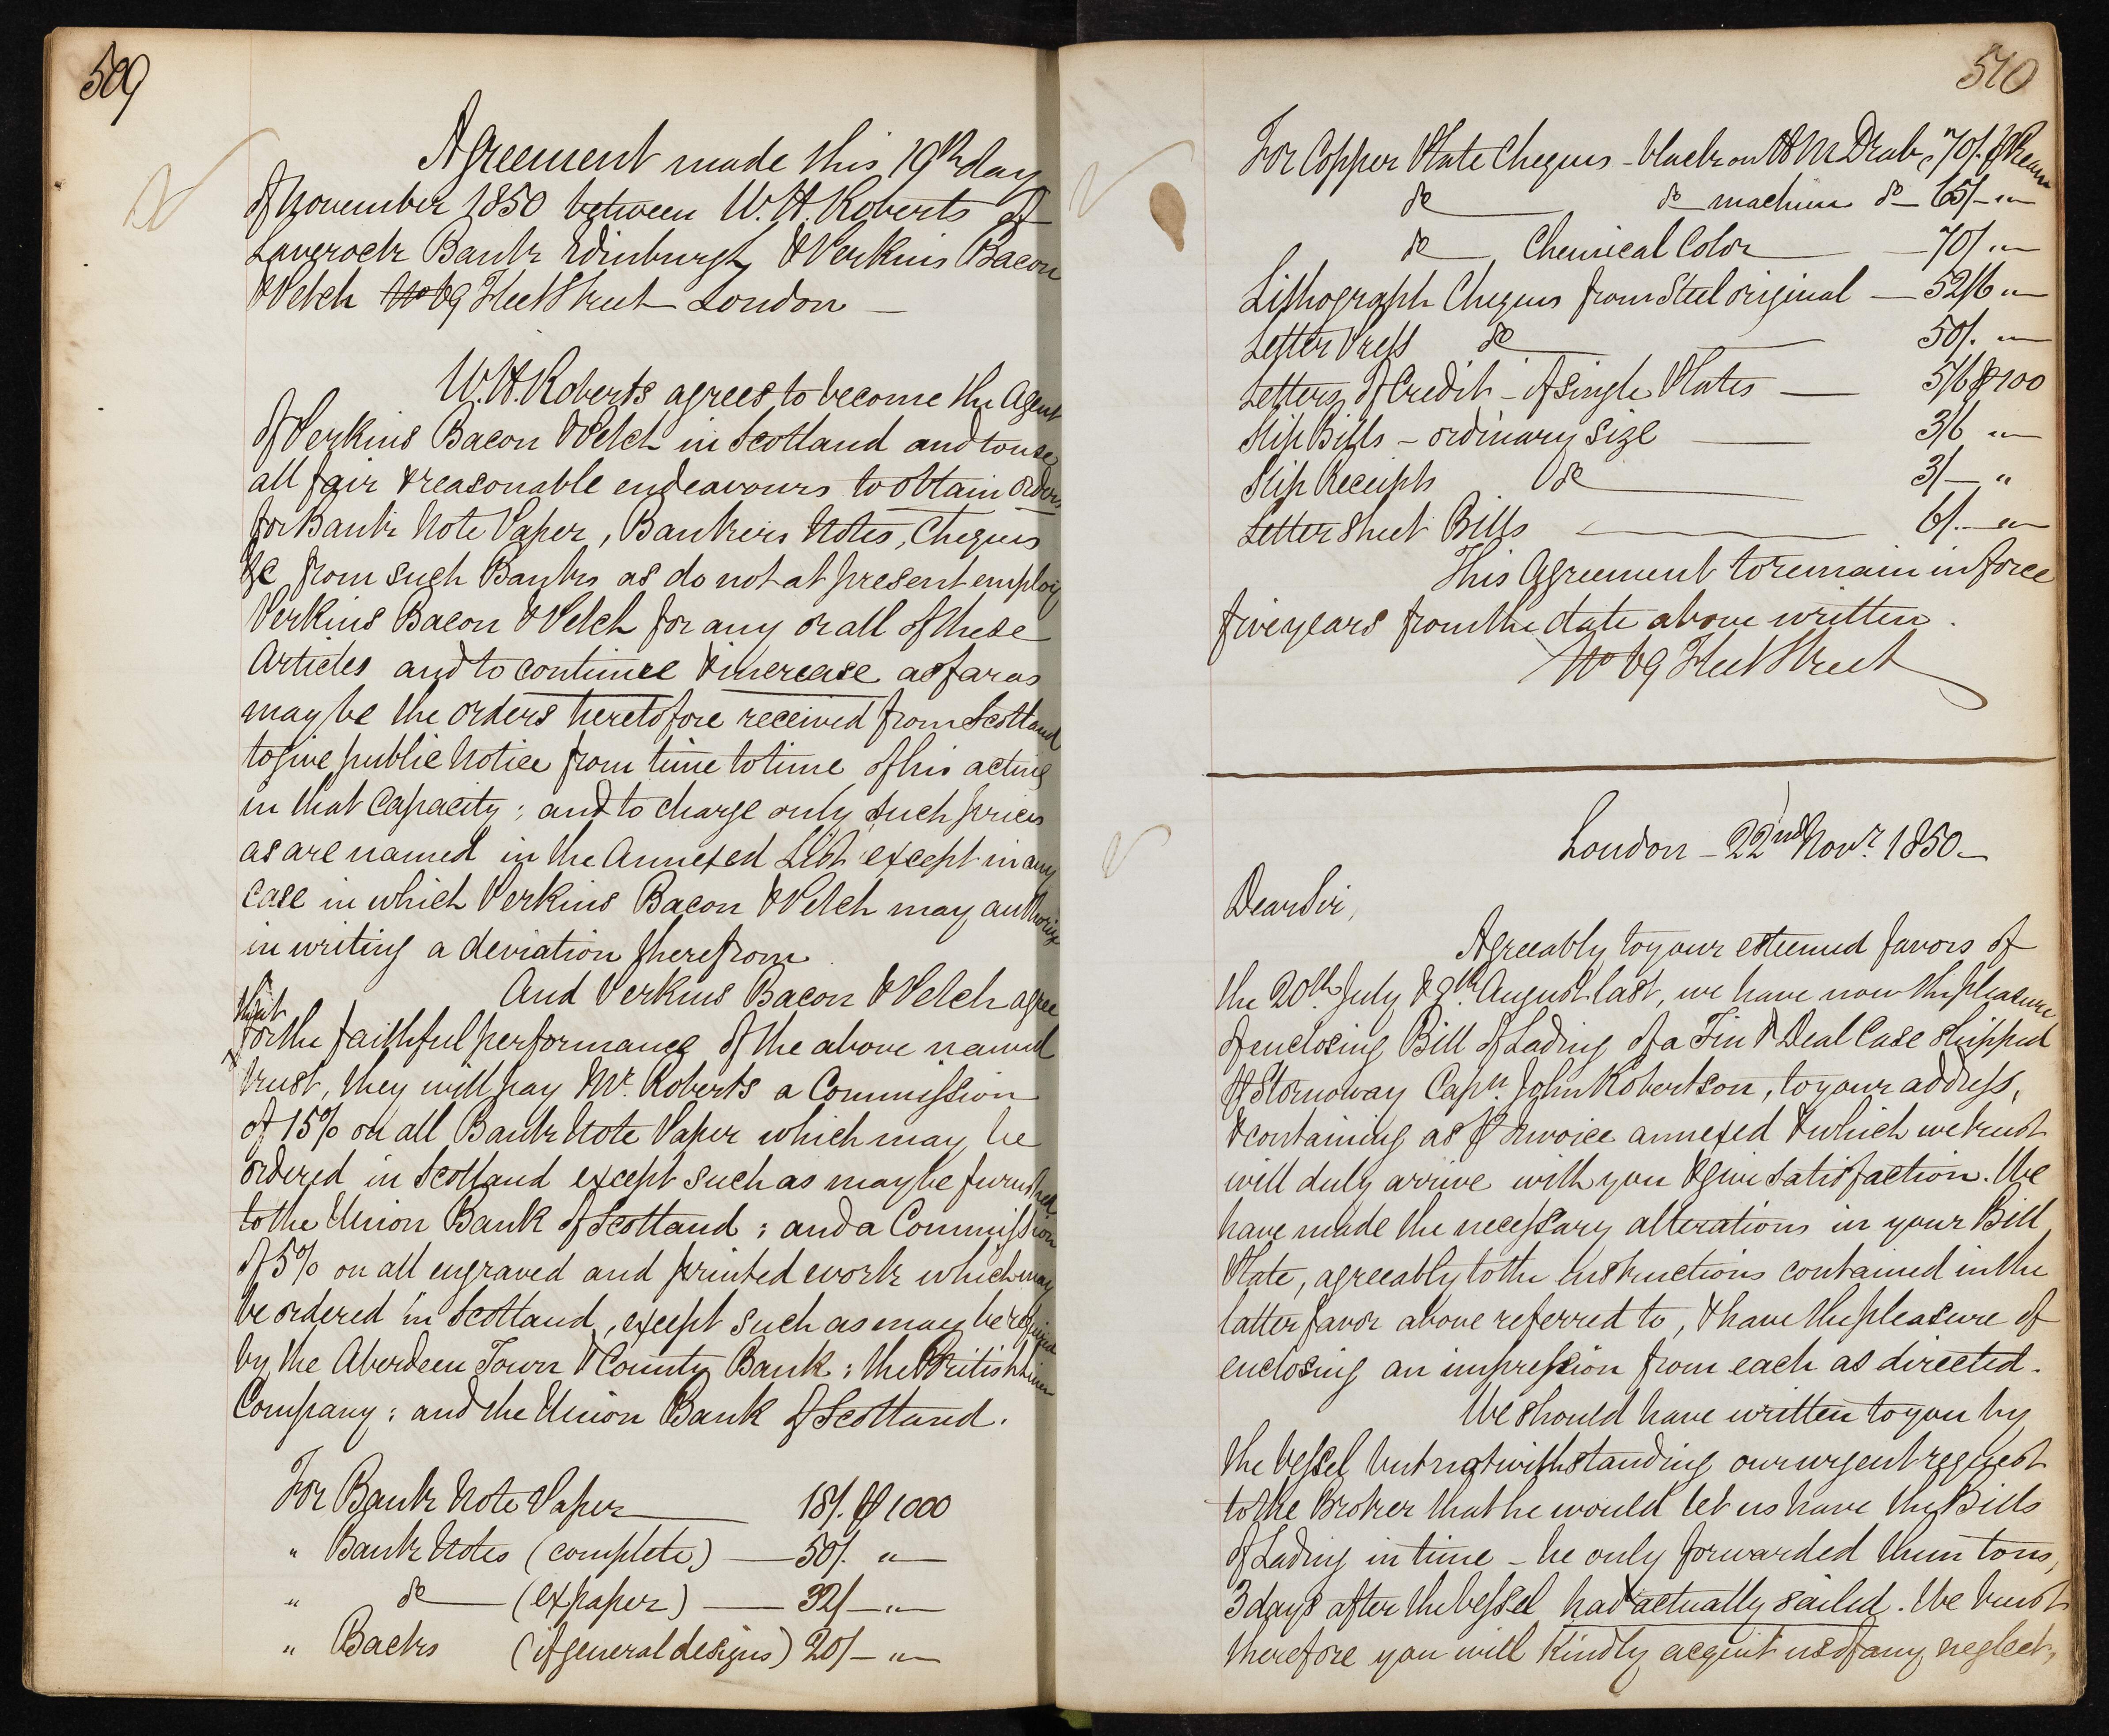 509
Agreement made this 19th day
of November 1850 between W. H. Roberts of
Laverock Bank Edinburgh, & Perkins Bacon
& Petch No 69 Fleet Street London —
W. H. Roberts agrees to become the Agent
of Perkins Bacon & Petch in Scotland and to use
all fair & reasonable endeavours to obtain orders
for Bank Note Paper, Bankers Notes, Cheques
&c from such Banks as do not at present employ
Perkins Bacon & Petch for any or all of these
Articles and to continue & increase as far as
may be the orders heretofore received from Scotland
to give public notice from time to time of his acting
in that Capacity; and to charge only such prices
as are named in the Annexed List except in any
case in which Perkins Bacon & Petch may authorize
in writing a deviation therefrom.
And Perkins Bacon & Petch agree
that
for the faithful performance of the above named
trust, they will pay Mr. Roberts a Commission
of 15% on all Bank Note Paper which may be
ordered in Scotland except such as may be furnished
to the Union Bank of Scotland; and a Commission
of 5% on all engraved and printed work which may
be ordered in Scotland, except such as may be required
by the Aberdeen Town & County Bank: the British Linen
Company: and the Union Bank of Scotland.
For Bank Note Paper — 18/. ⅌ 1000
" Bank Notes (complete) — 50/. "
" do — (ex paper) — 32/— "
" Backs (if general designs) 20/— "
510
For Copper Plate Cheques — black on H M Drab, 70/. ⅌ Ream
do — do machine do — 65/— "
do — Chemical Color — 70/. "
Lithograph Cheques from Steel original — 52/6 "
Letter Press do — 50/. "
Letters of Credit — if single Plates — 5/6 ⅌ 100
Slip Bills — ordinary size — 3/6 "
Slip Receipts do — 3/— "
Letter sheet Bills — 6/. — "
This Agreement to remain in force
five years from the date above written.
No 69 Fleet Street
London — 22nd Novr. 1850 —
Dear Sir,
Agreeably to your esteemed favors of
the 20th July & 8th August last, we have now the pleasure
of enclosing Bill of Lading of a Tin & Deal Case shipped
⅌ Stornoway Capn. John Robertson, to your address,
& containing as ⅌ Invoice annexed & which we trust
will duly arrive with you & give satisfaction. We
have made the necessary alterations in your Bill
Plate, agreeably to the instructions contained in the
latter favor above referred to, & have the pleasure of
enclosing an impression from each as directed.
We should have written to you by
the vessel but notwithstanding our urgent request
to the Broker that he would let us have the Bills
of Lading in time — he only forwarded them to us,
3 days after the vessel had actually sailed. We trust
therefore you will kindly acquit us of any neglect,